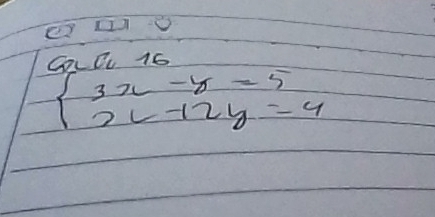 Câu 16
3x - y = 5
x + 2y = 4